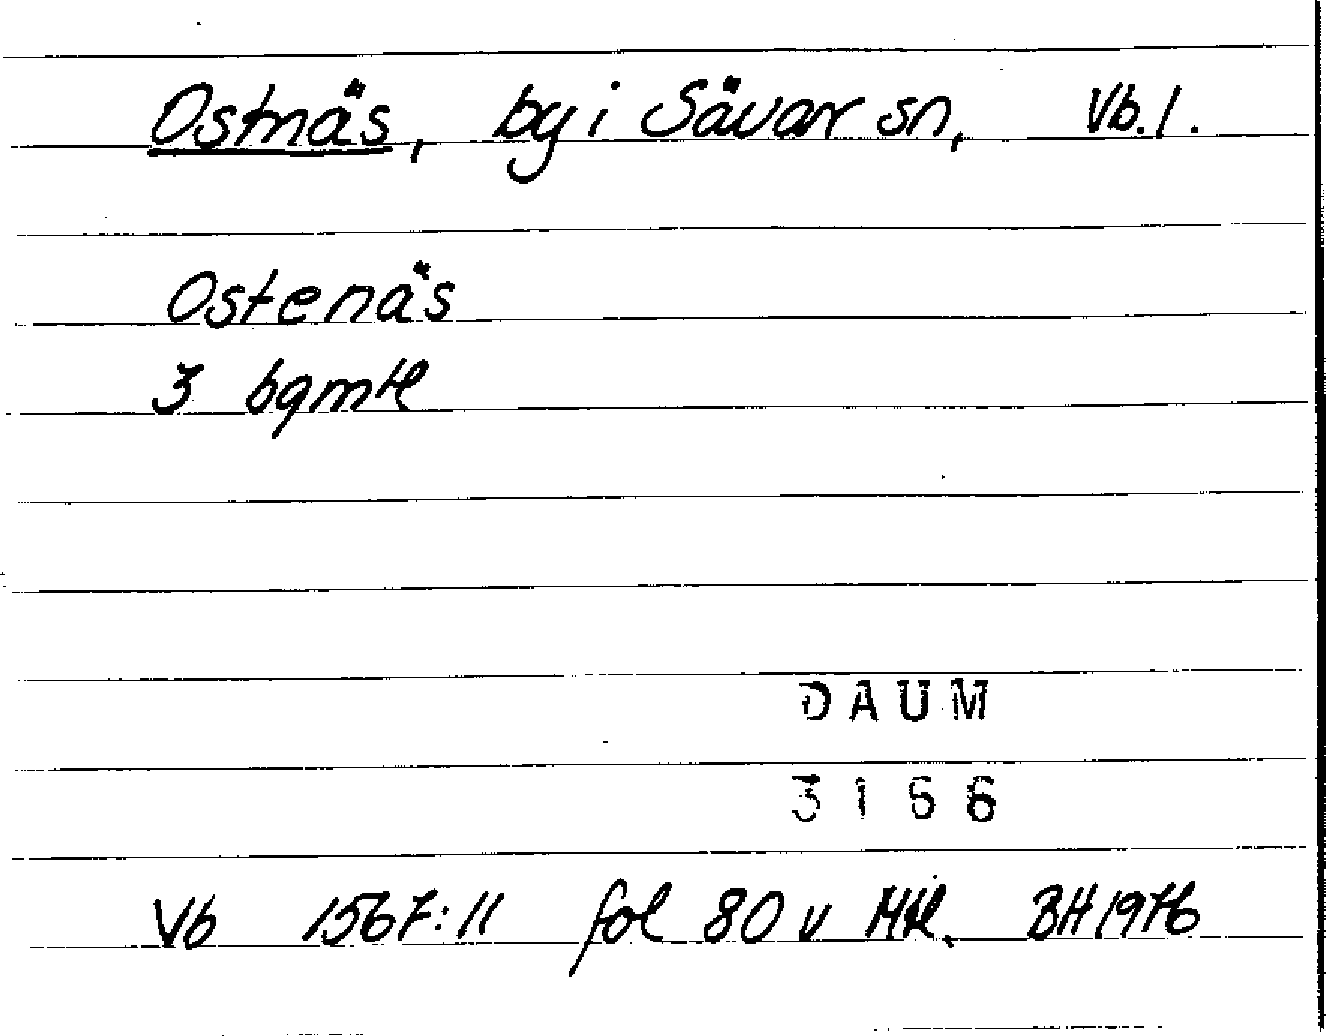 Ostnäs, by i Sävar sn, Vb. l.
Ostenäs
3 bqmtl
DAUM
3166
Vb 1567:11 fol 80 v Mtl. BH 1976